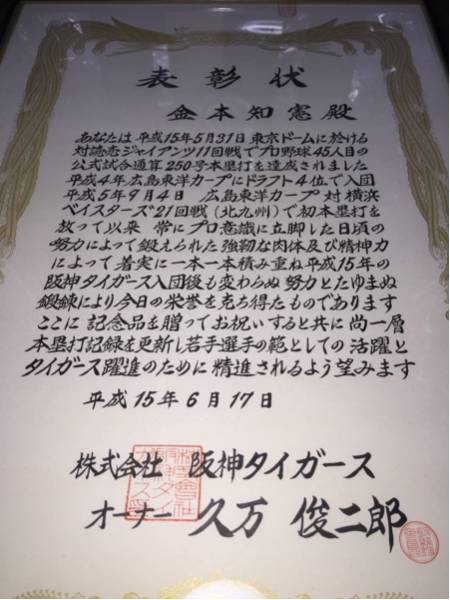 表彰状
金本知憲殿
あなたは平成15年5月31日東京ドームに於ける
対読売ジャイアンツ11回戦でプロ野球45人目の
公式試合通算250号本塁打を達成されました
平成4年広島東洋カープにドラフト4位で入団
平成5年9月4日 広島東洋カープ対横浜
ベイスターズ21回戦(北九州)で初本塁打を
放って以来 常にプロ意識に立脚した日頃の
努力によって鍛えられた強靭な肉体及び精神力
によって着実に一本一本積み重ね平成15年の
阪神タイガース入団後も変わらぬ努力とたゆまぬ
鍛錬により今日の栄誉を克ち得たものであります
ここに記念品を贈ってお祝いすると共に尚一層
本塁打記録を更新し若手選手の範としての活躍と
タイガース躍進のために精進されるよう望みます
平成15年6月17日
株式会社 阪神タイガース
オーナー 久万 俊二郎